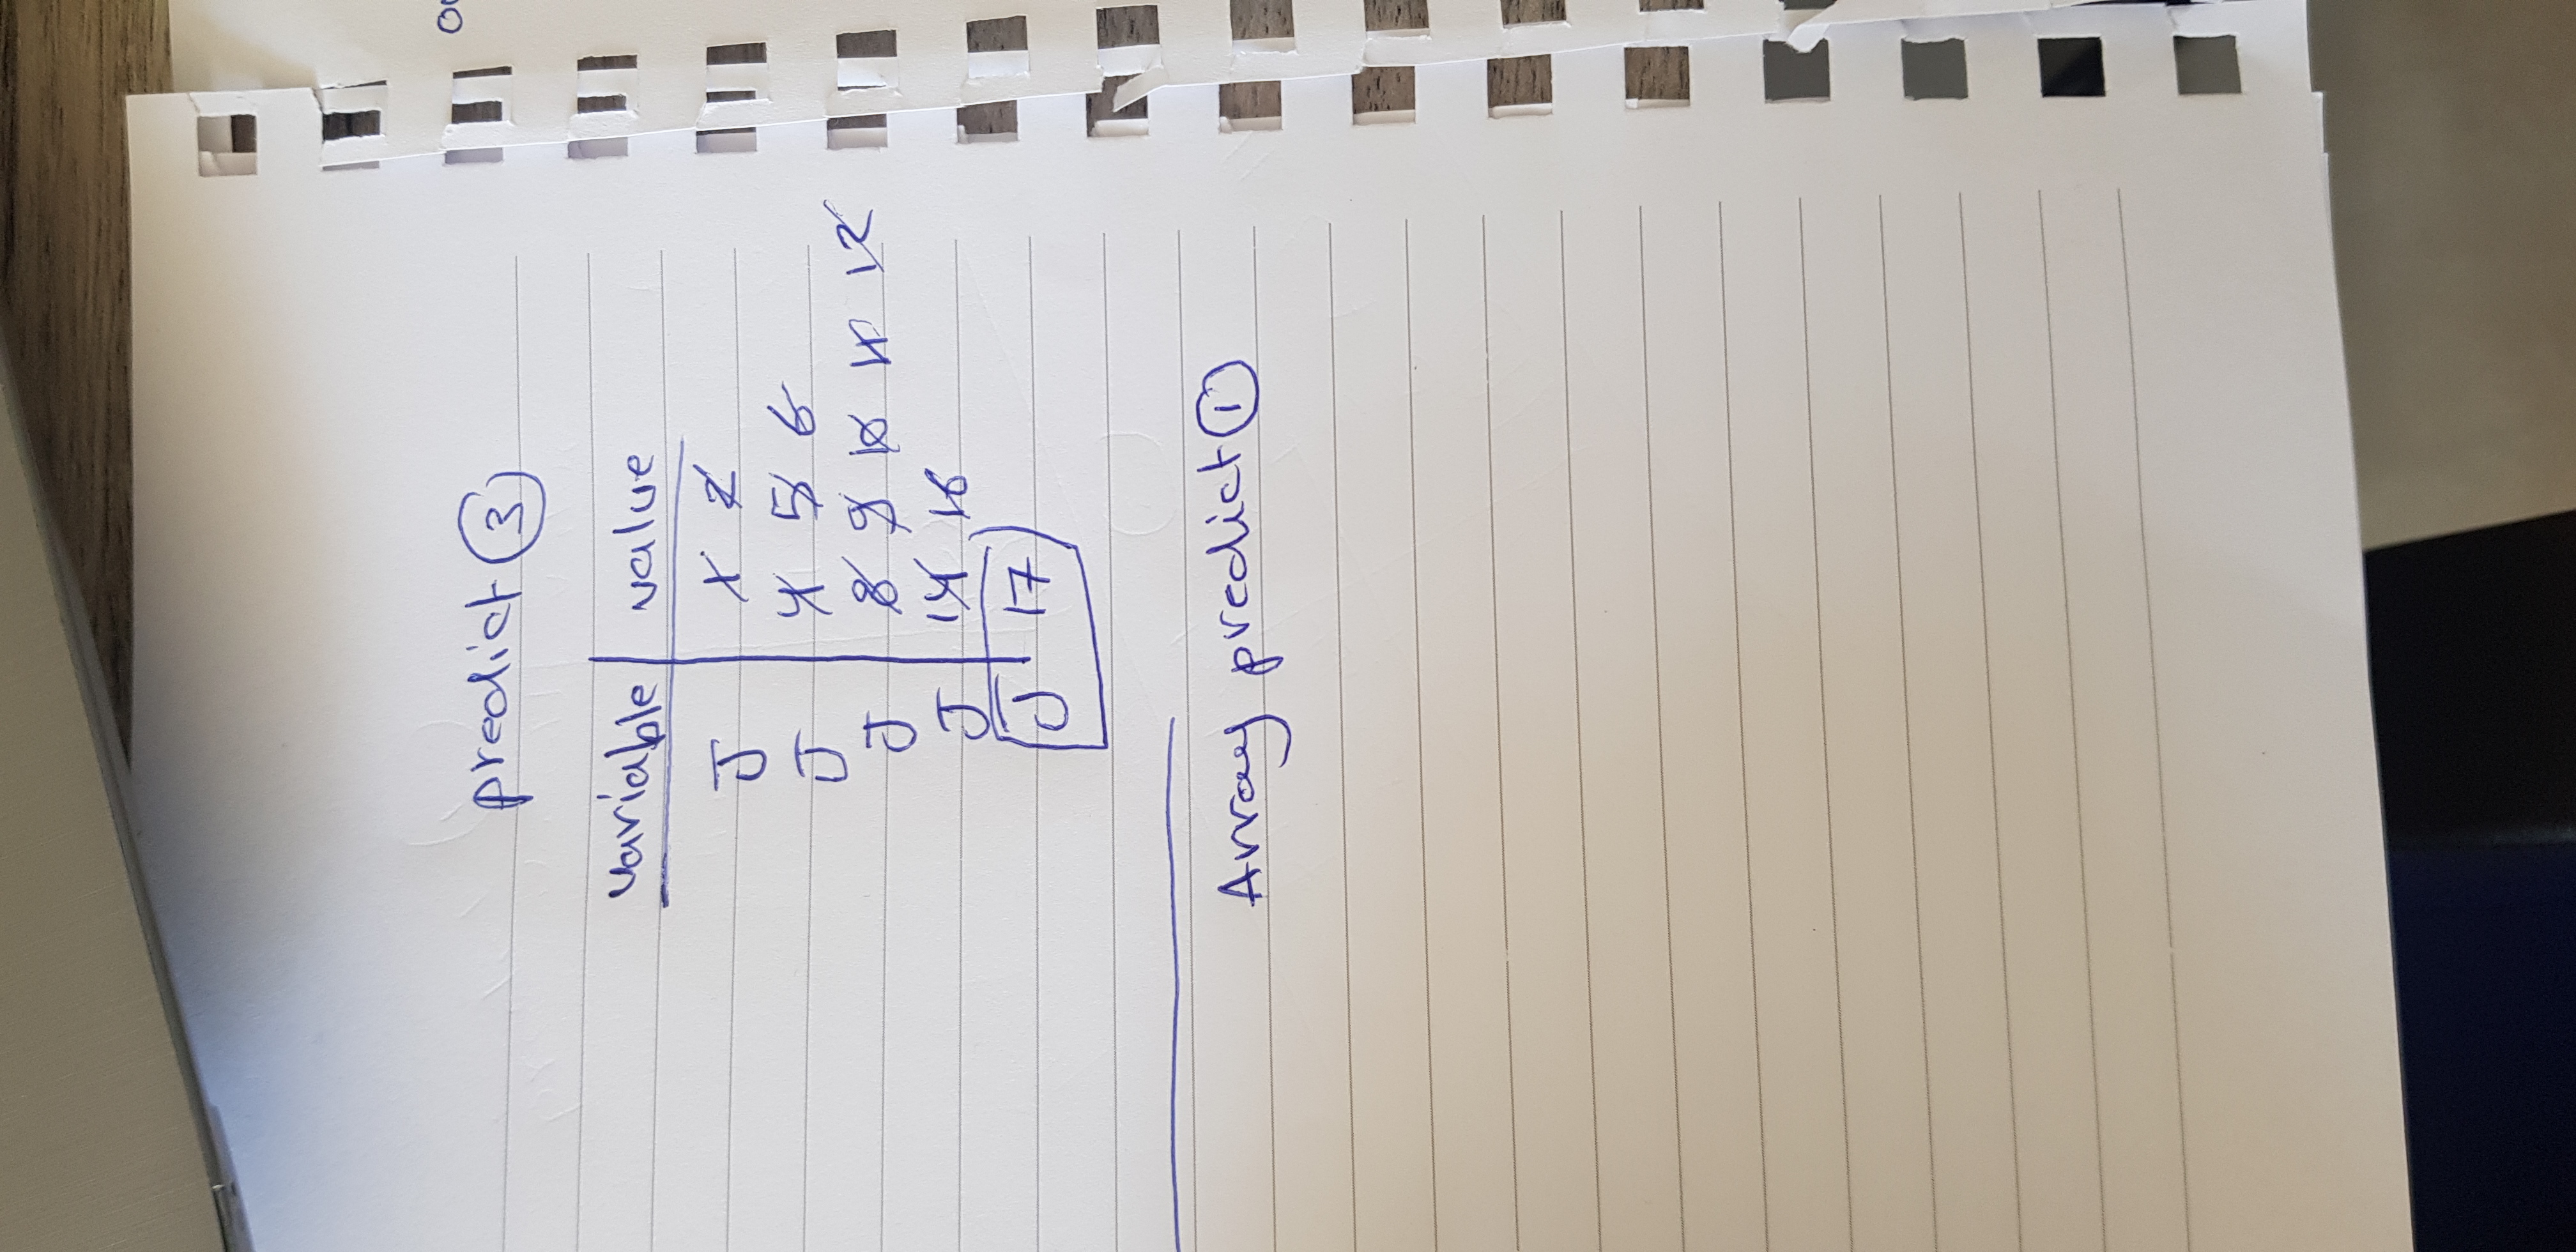 predict 3
variable value
J 1 2
J 4 5 6
J 8 9 10 11 12
J 14 16
J 17
Array predict 1